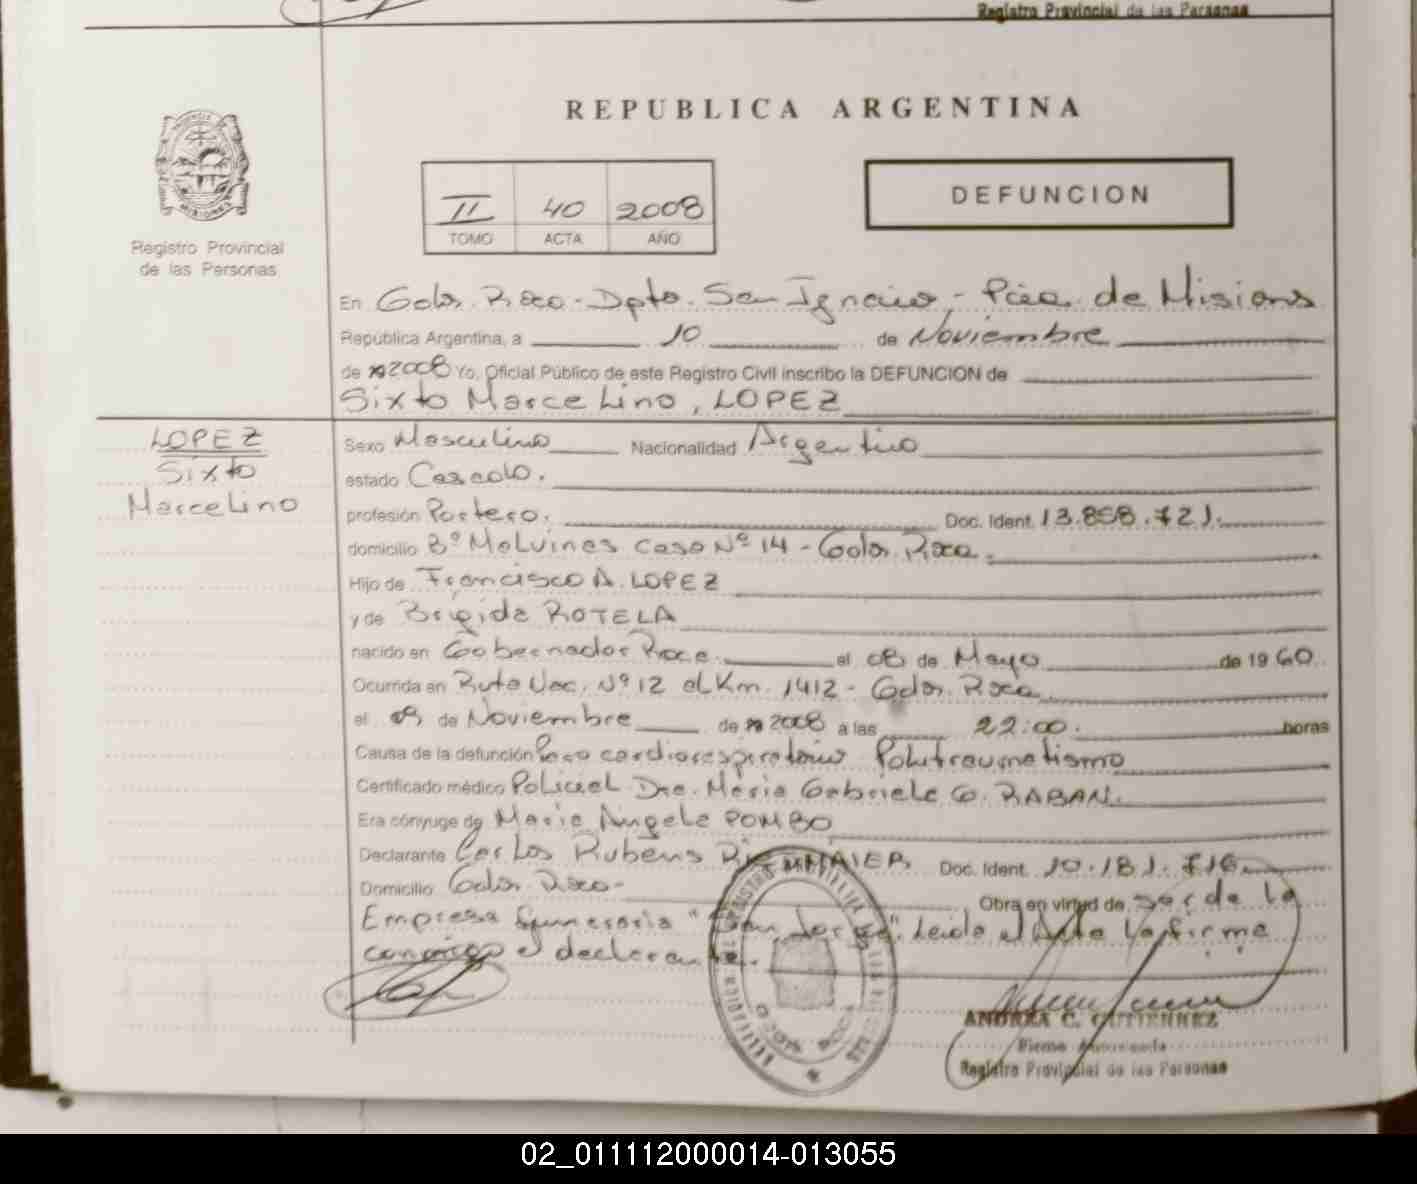 Registro Provincial de las Personas
REPUBLICA ARGENTINA
MISIONES
Registro Provincial
de las Personas
II 40 2008
TOMO ACTA AÑO
DEFUNCION
En Gdor. Roca - Dpto. San Ignacio - Pcia. de Misiones
República Argentina, a 10 de Noviembre
de 2008 Yo, Oficial Público de este Registro Civil inscribo la DEFUNCION de
Sixto Marcelino, LOPEZ
LOPEZ
Sixto
Marcelino
Sexo Masculino Nacionalidad Argentino
estado Casado.
profesión Portero. Doc. Ident. 13.858.721.
domicilio Bº Malvinas casa Nº 14 - Gdor. Roca.
Hijo de Francisco A. LOPEZ
y de Brigida ROTELA
nacido en Gobernador Roca. el 08 de Mayo de 19 60.
Ocurrida en Ruta Nac. Nº 12 al Km. 1412 - Gdor. Roca
el 09 de Noviembre de 2008 a las 22:00. horas
Causa de la defunción Paro cardiorespiratorio Politraumatismo
Certificado médico Policial Dra. Maria Gabriela G. RABAN.
Era cónyuge de Maria Angela POMBO
Declarante Carlos Rubens Doc. Ident. 10.181.716
Domicilio Gdor. Roca - Obra en virtud de ser de la
Empresa funeraria "San Jorge". Leida el Acta la firma
conmigo el declarante.
ANDREA C. GUTIERREZ
Firma Autorizada
Registro Provincial de las Personas
02_011112000014-013055